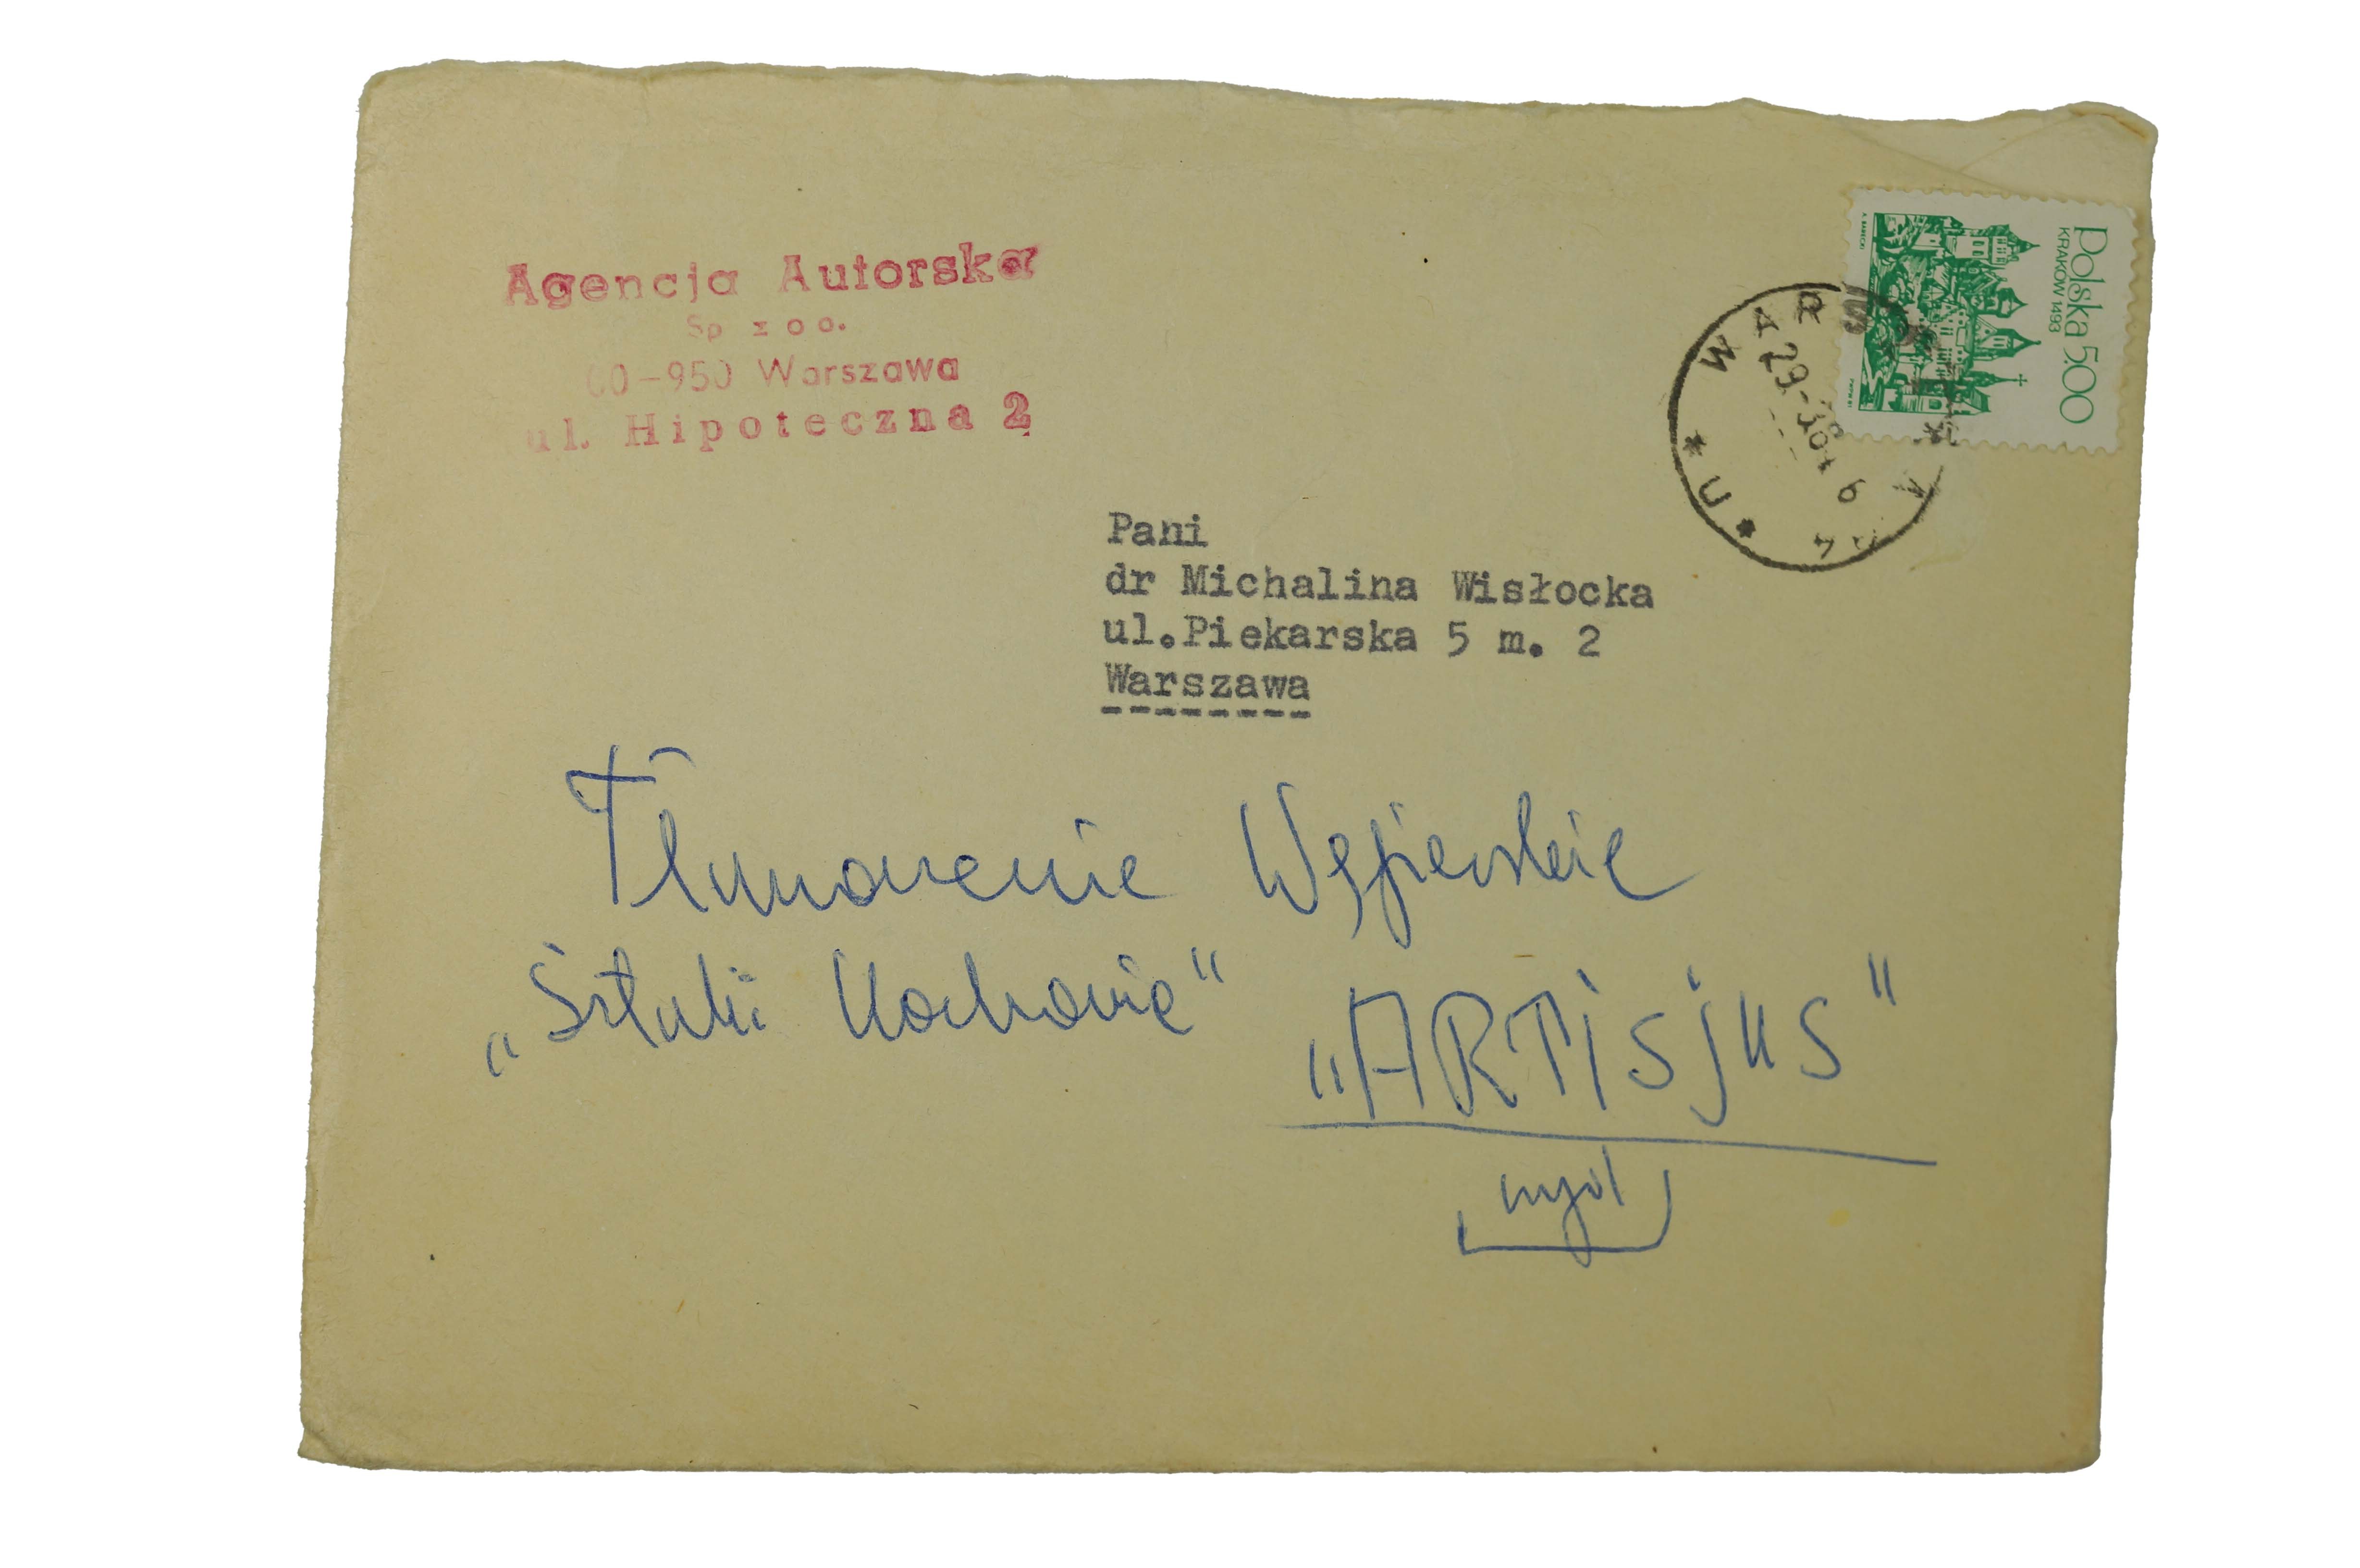 Agencja Autorska
Sp z o o.
00-950 Warszawa
ul. Hipoteczna 2
Polska 5.00
KRAKÓW 1493
WARSZAWA
U
Pani
dr Michalina Wisłocka
ul.Piekarska 5 m. 2
Warszawa
Tłumaczenie Węgierskie
„Sztuki Kochania“
„ARTISJUS”